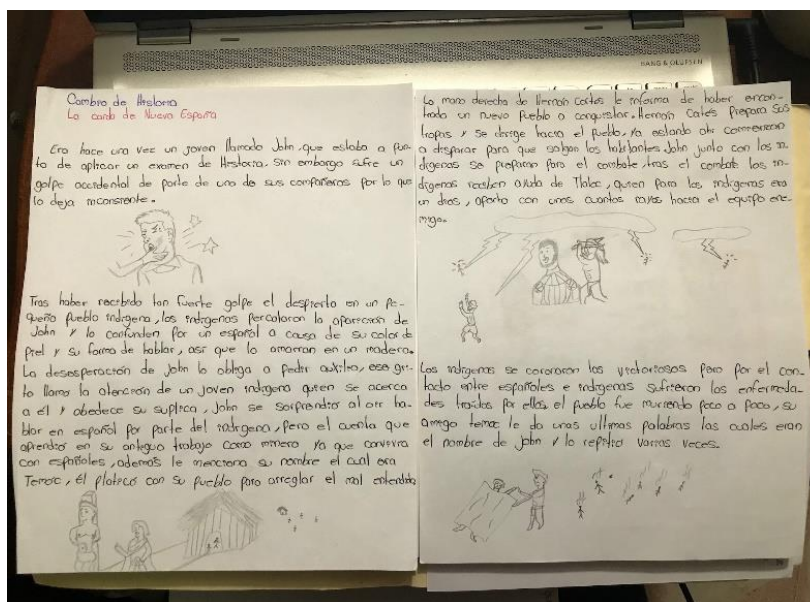 BANG & OLUFSEN
Cambio de Historia
La caida de Nueva España
Era hace una vez un joven llamado John, que estaba a pun-
to de aplicar un examen de Historia. Sin embargo sufre un
golpe accidental de parte de uno de sus compañeros por lo que
lo deja inconsiente.
Tras haber recibido tan fuerte golpe el despierta en un pe-
queño pueblo indigena, los indigenas percataron la aparicion de
John y lo confunden por un español a causa de su color de
piel y su forma de hablar, asi que lo amarran en un madera.
La desesperación de John lo obliga a pedir auxilio, ese gri-
to llamo la atencion de un joven indigena quien se acerca
a él y obedece su suplica, John se sorprendio al oir ha-
blar en español por parte del indigena, pero el cuenta que
aprendio en su antiguo trabajo como minero ya que convivia
con españoles, ademas le menciona su nombre el cual era
Temoc, Él platico con su pueblo para arreglar el mal entendido
La mano derecha de Hernan Cortes le informa de haber encon-
trado un nuevo pueblo a conquistar. Hernan Cortes prepara sus
tropas y se dirige hacia el pueblo, ya estando ahi comenzaron
a disparar para que salgan los habitantes. John junto con los in
digenas se preparan para el combate, tras el combate los in-
digenas reciben ayuda de Tlaloc, quien para los indigenas era
un dios, aporto con unos cuantos rayos hacia el equipo ene-
migo.
Los indigenas se coronaron los victoriosos pero por el con-
tacto entre españoles e indigenas sufrieron las enfermeda-
des traidas por ellos, el pueblo fue muriendo poco a poco, su
amigo temoc le da unas ultimas palabras las cuales eran
el nombre de john y lo repitio varias veces.